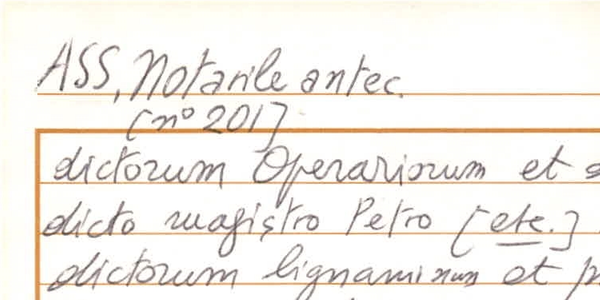 ASS, Notarile antec.
[n° 201]
dictorum Operariorum et
dicto magistro Petro [etc.]
dictorum lignaminum et